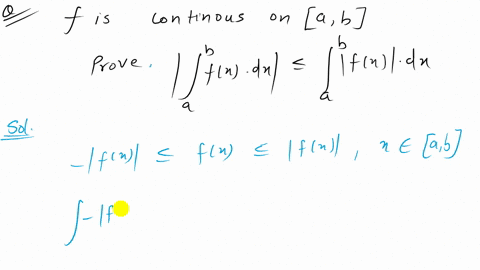 Q f is continous on [a, b]
Prove. |∫_a^b f(x)·dx| ≤ ∫_a^b |f(x)|·dx
Sol.
-|f(x)| ≤ f(x) ≤ |f(x)|, x ∈ [a,b]
∫-|f